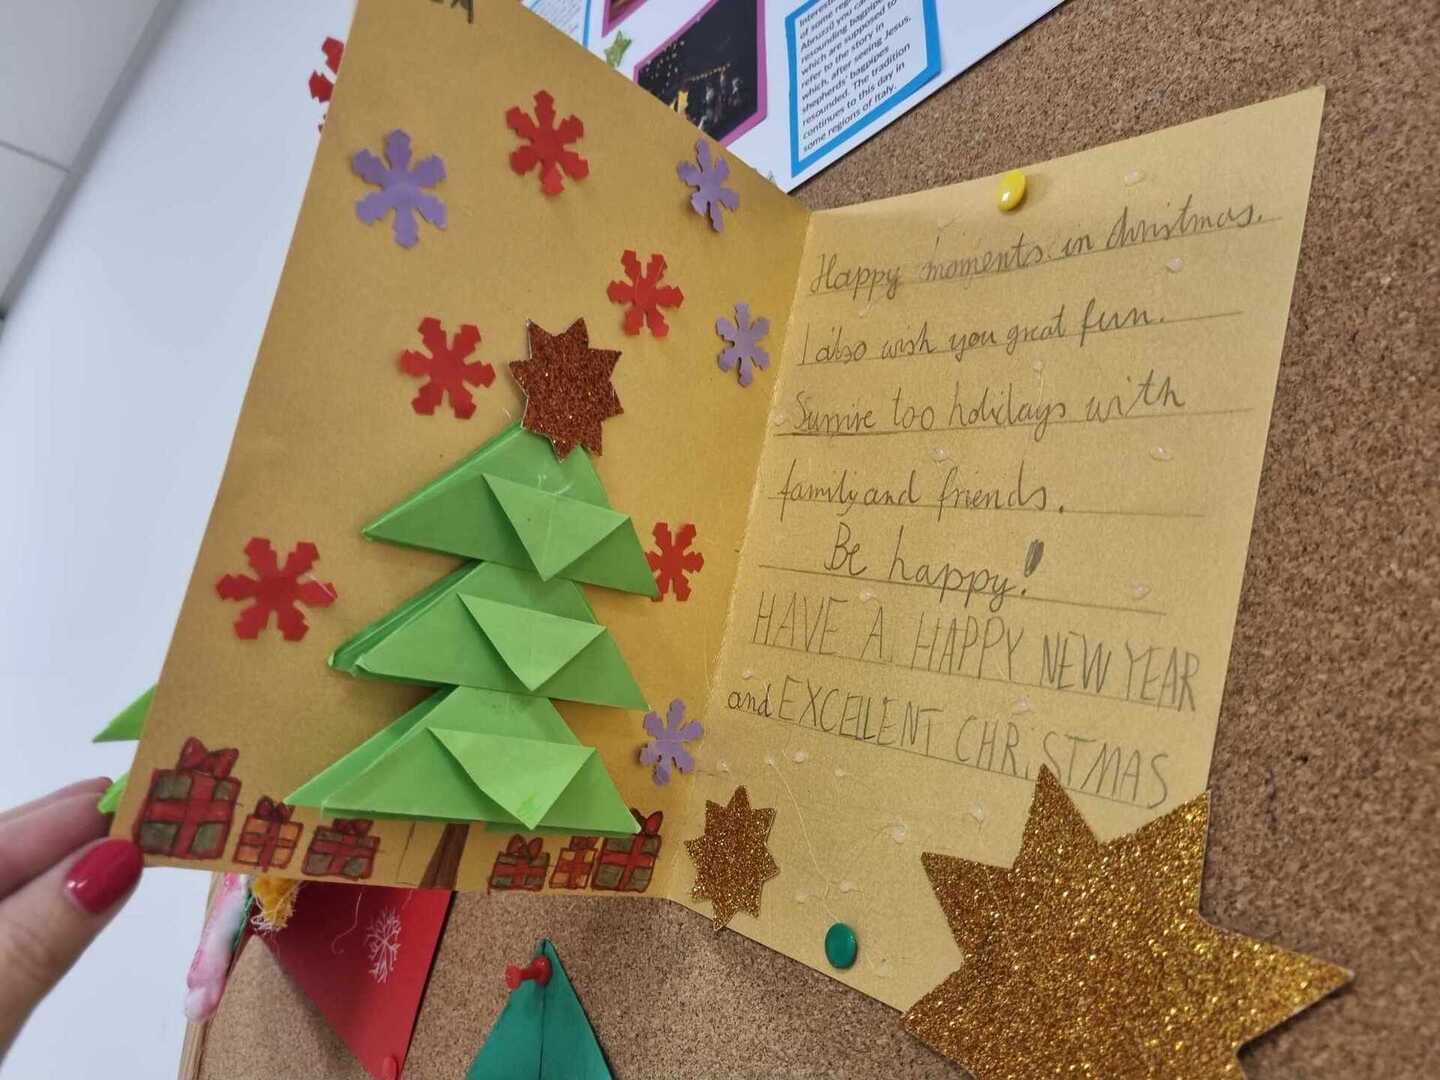 of some regi
Abruzzi you can
resounding bagpipes
which are supposed to
refer to the story in
which, after seeing Jesus,
shepherds' bagpipes
resounded. The tradition
continues to this day in
some regions of Italy.
Happy moments in christmas.
I also wish you great fun.
Survive too holidays with
family and friends.
Be happy!
HAVE A HAPPY NEW YEAR
and EXCELLENT CHRISTMAS